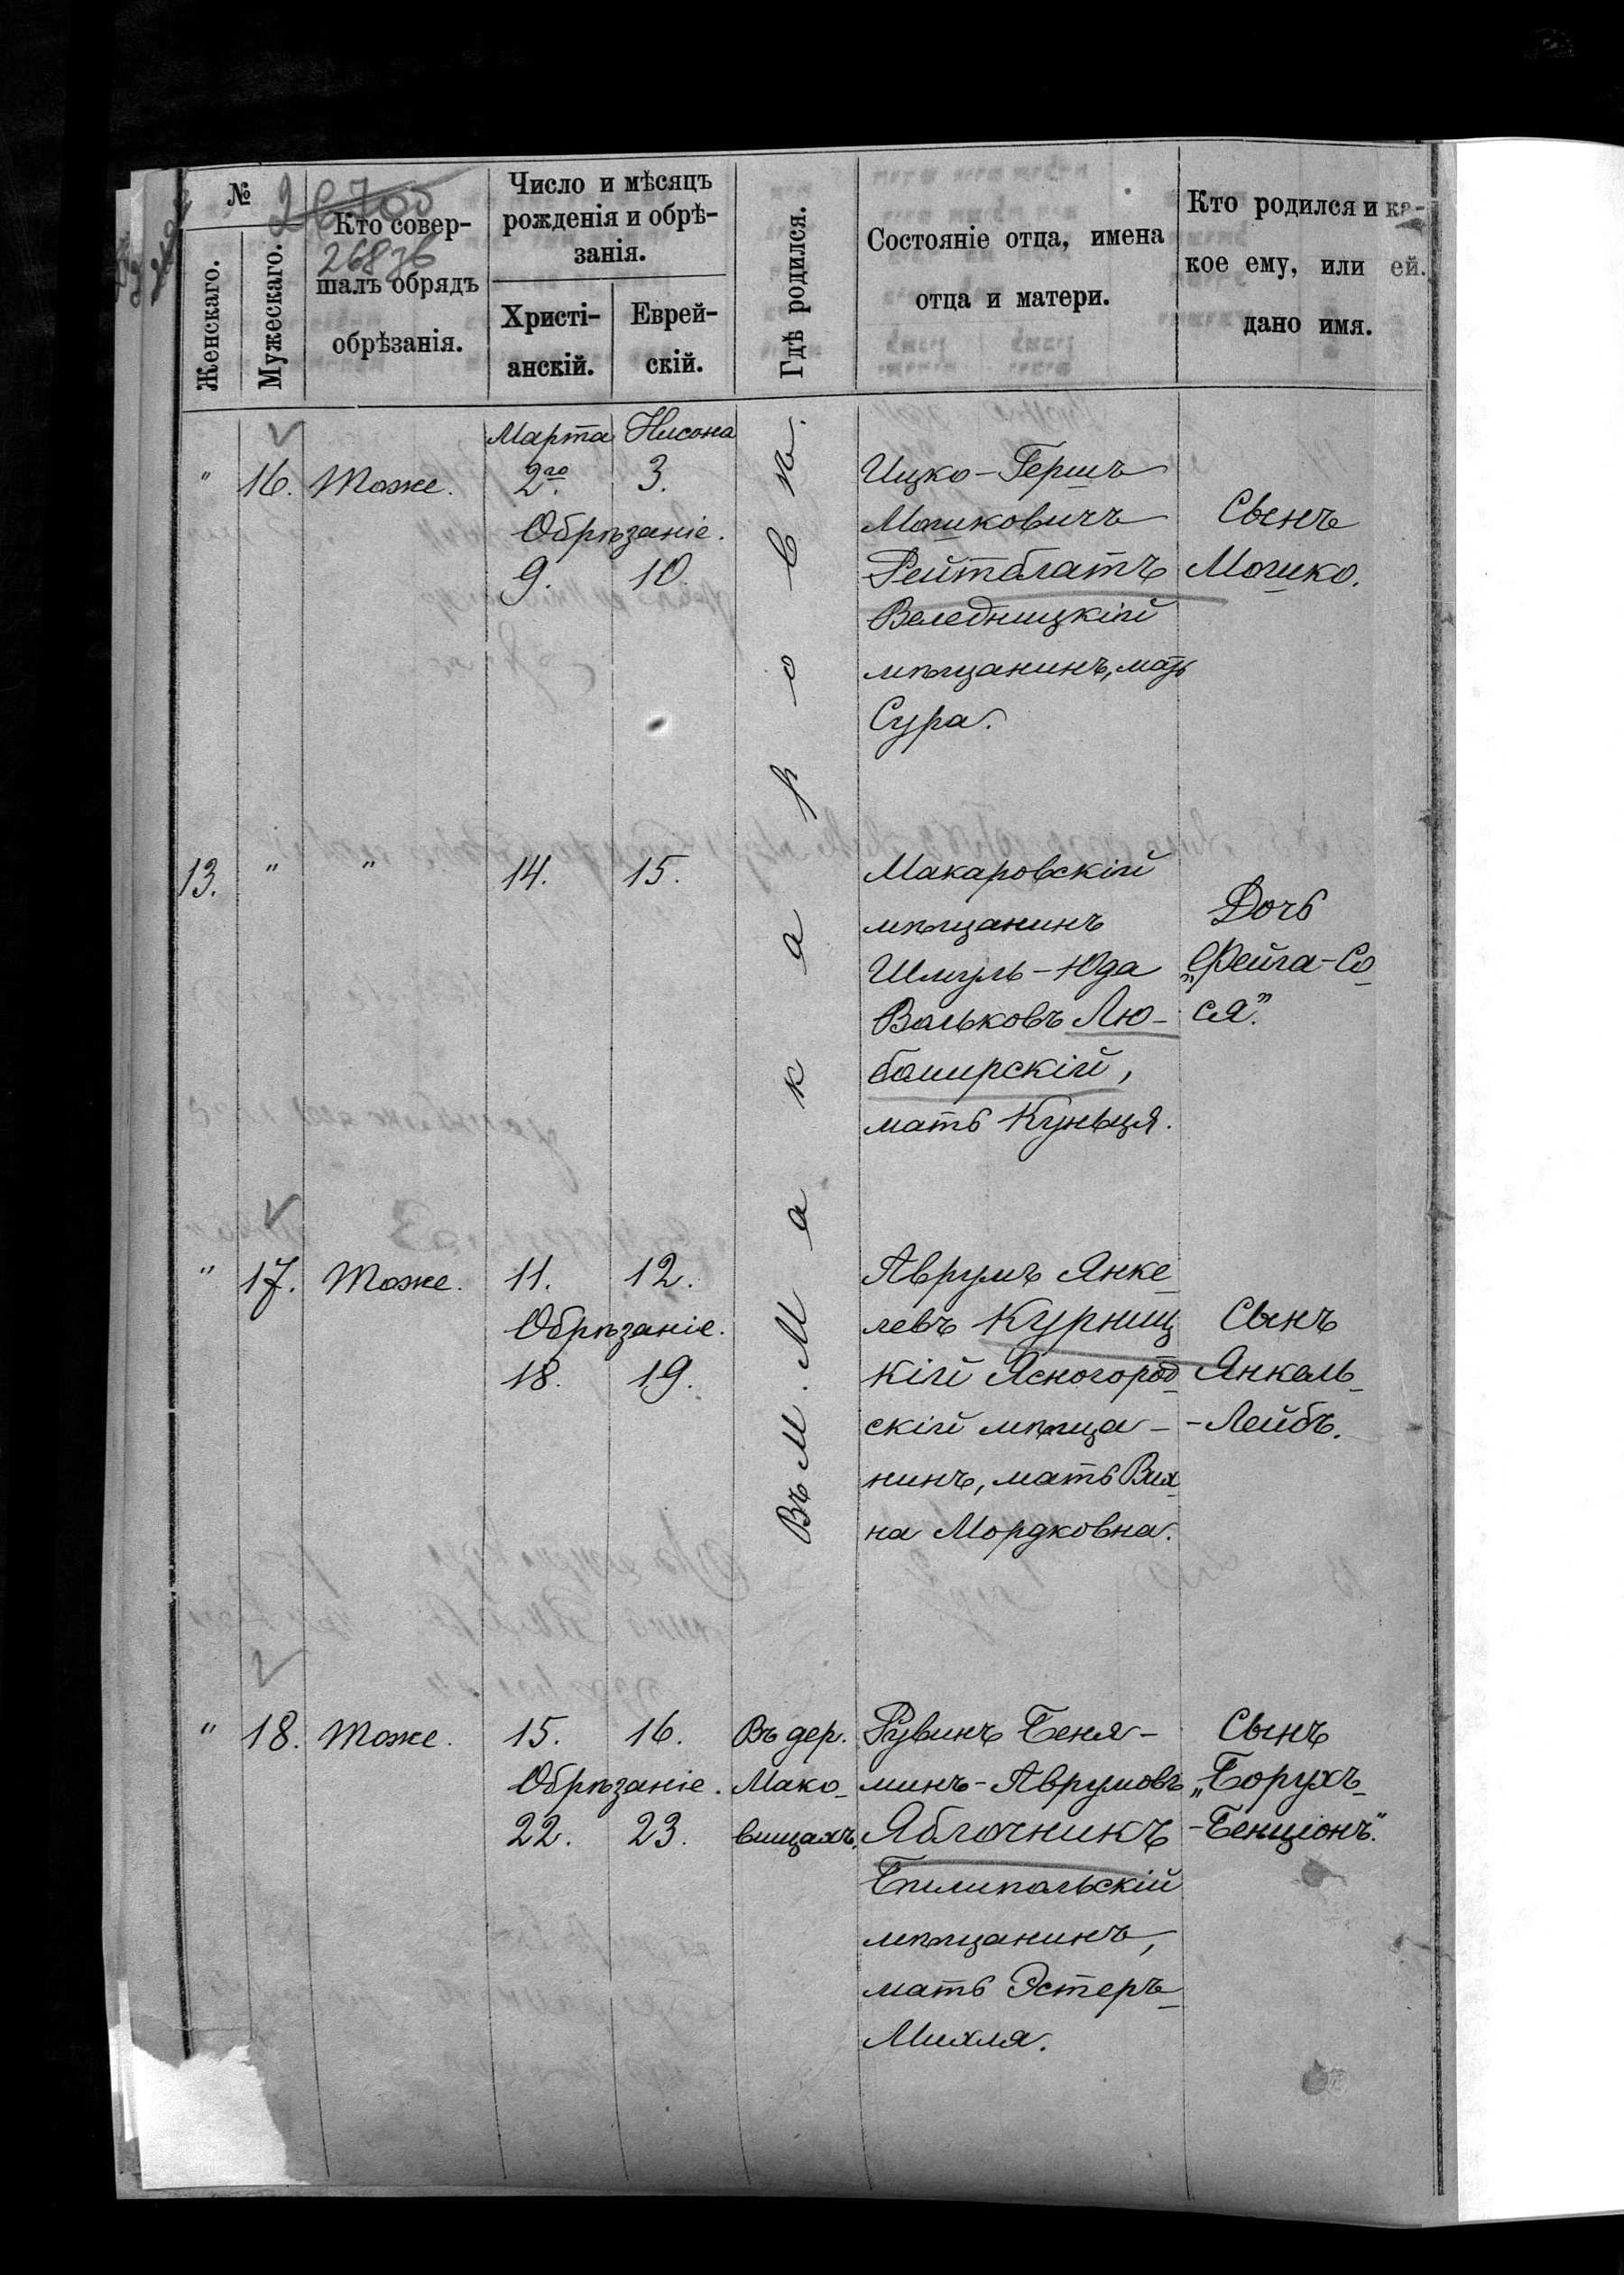 №
26700
26836
Женскаго.
Мужескаго.
Кто совер-
шалъ обрядъ
обрѣзанія.
Число и мѣсяцъ
рожденія и обрѣ-
занія.
Христі-
анскій.
Еврей-
скій.
Гдѣ родился.
Состояніе отца, имена
отца и матери.
Кто родился и ка-
кое ему, или ей.
дано имя.
Марта Нисона
" 16. Тоже. 2го. 3.
Обрѣзаніе.
9. 10.
Въ М. Макаровѣ.
Ицко-Гершъ
Мошковичъ
Рейтблатъ
Веледницкій
мѣщанинъ, мать
Сура.
Сынъ
Мошко.
13. " " 14. 15.
Макаровскій
мѣщанинъ
Шмуль-Юда
Вольковъ Лю-
бомирскій,
мать Куньця.
Дочь
„Фейга-Со-
ся".
" 17. Тоже. 11. 12.
Обрѣзаніе.
18. 19.
Аврумъ Янке-
левъ Курниц
кій Ясногород-
скій мѣща-
нинъ, мать Вих-
на Мордковна.
Сынъ
Янкель-
-Лейбъ.
" 18. Тоже. 15. 16.
Обрѣзаніе.
22. 23.
Въ дер.
Мако-
вищахъ.
Рувинъ Беня-
минъ-Аврумовъ
Яблочникъ
Бѣлипольскій
мѣщанинъ,
мать Эстеръ-
Михля.
Сынъ
„Борухъ-
-Бенціонъ."